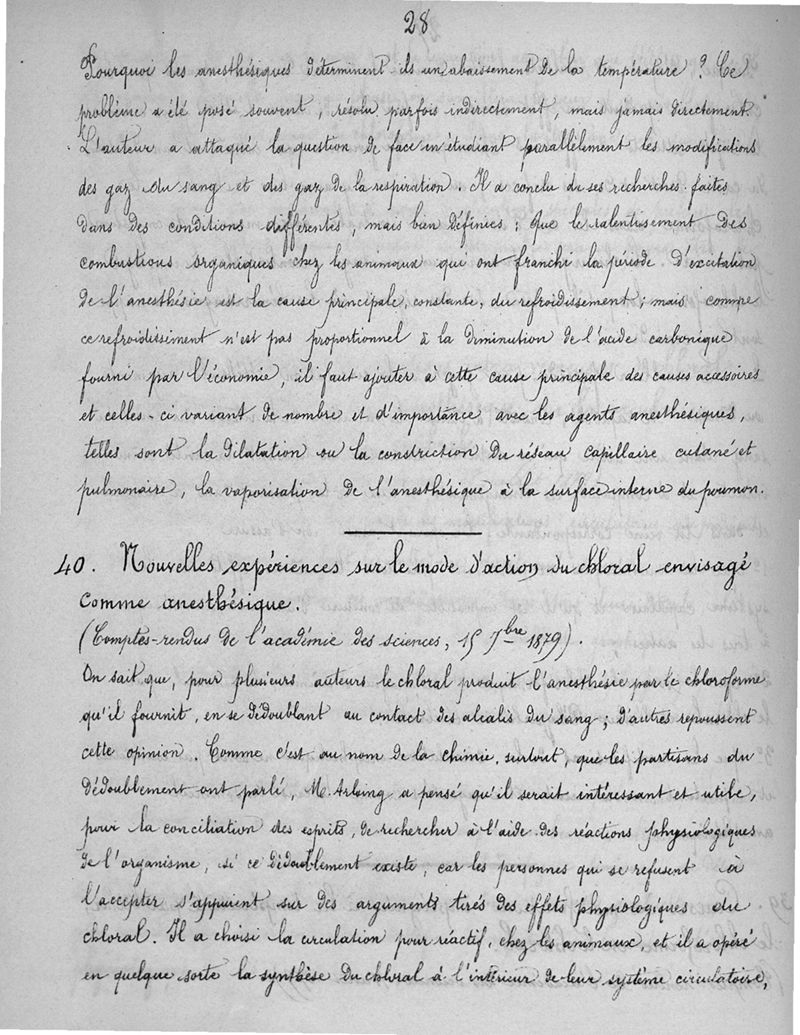 28
Pourquoi les anesthésiques déterminent ils un abaissement de la température ? Ce
problème a été posé souvent, résolu parfois indirectement, mais jamais directement.
L'auteur a attaqué la question de face en étudiant parallèlement les modifications
des gaz du sang et des gaz de la respiration. Il a conclu de ses recherches faites
dans des conditions différentes, mais bien définies ; que le ralentissement des
combustions organiques chez les animaux qui ont franchi la période d'excitation
de l'anesthésie est la cause principale, constante, du refroidissement ; mais comme
ce refroidissement n'est pas proportionnel à la diminution de l'acide carbonique
fourni par l'économie, il faut ajouter à cette cause principale des causes accessoires
et celles-ci variant de nombre et d'importance avec les agents anesthésiques,
telles sont la dilatation ou la constriction du réseau capillaire cutané et
pulmonaire, la vaporisation de l'anesthésique à la surface interne du poumon.
40. Nouvelles expériences sur le mode d'action du chloral envisagé
comme anesthésique.
(Comptes-rendus de l'académie des sciences, 15 7bre 1879).
On sait que, pour plusieurs auteurs le chloral produit l'anesthésie par le chloroforme
qu'il fournit, en se dédoublant au contact des alcalis du sang ; d'autres repoussent
cette opinion. Comme c'est au nom de la chimie, surtout, que les partisans du
dédoublement ont parlé, M. Arloing a pensé qu'il serait intéressant et utile,
pour la conciliation des esprits, de rechercher à l'aide des réactions physiologiques
de l'organisme, si ce dédoublement existe, car les personnes qui se refusent à
l'accepter s'appuient sur des arguments tirés des effets physiologiques du
chloral. Il a choisi la circulation pour réactif, chez les animaux, et il a opéré
en quelque sorte la synthèse du chloral à l'intérieur de leur système circulatoire,